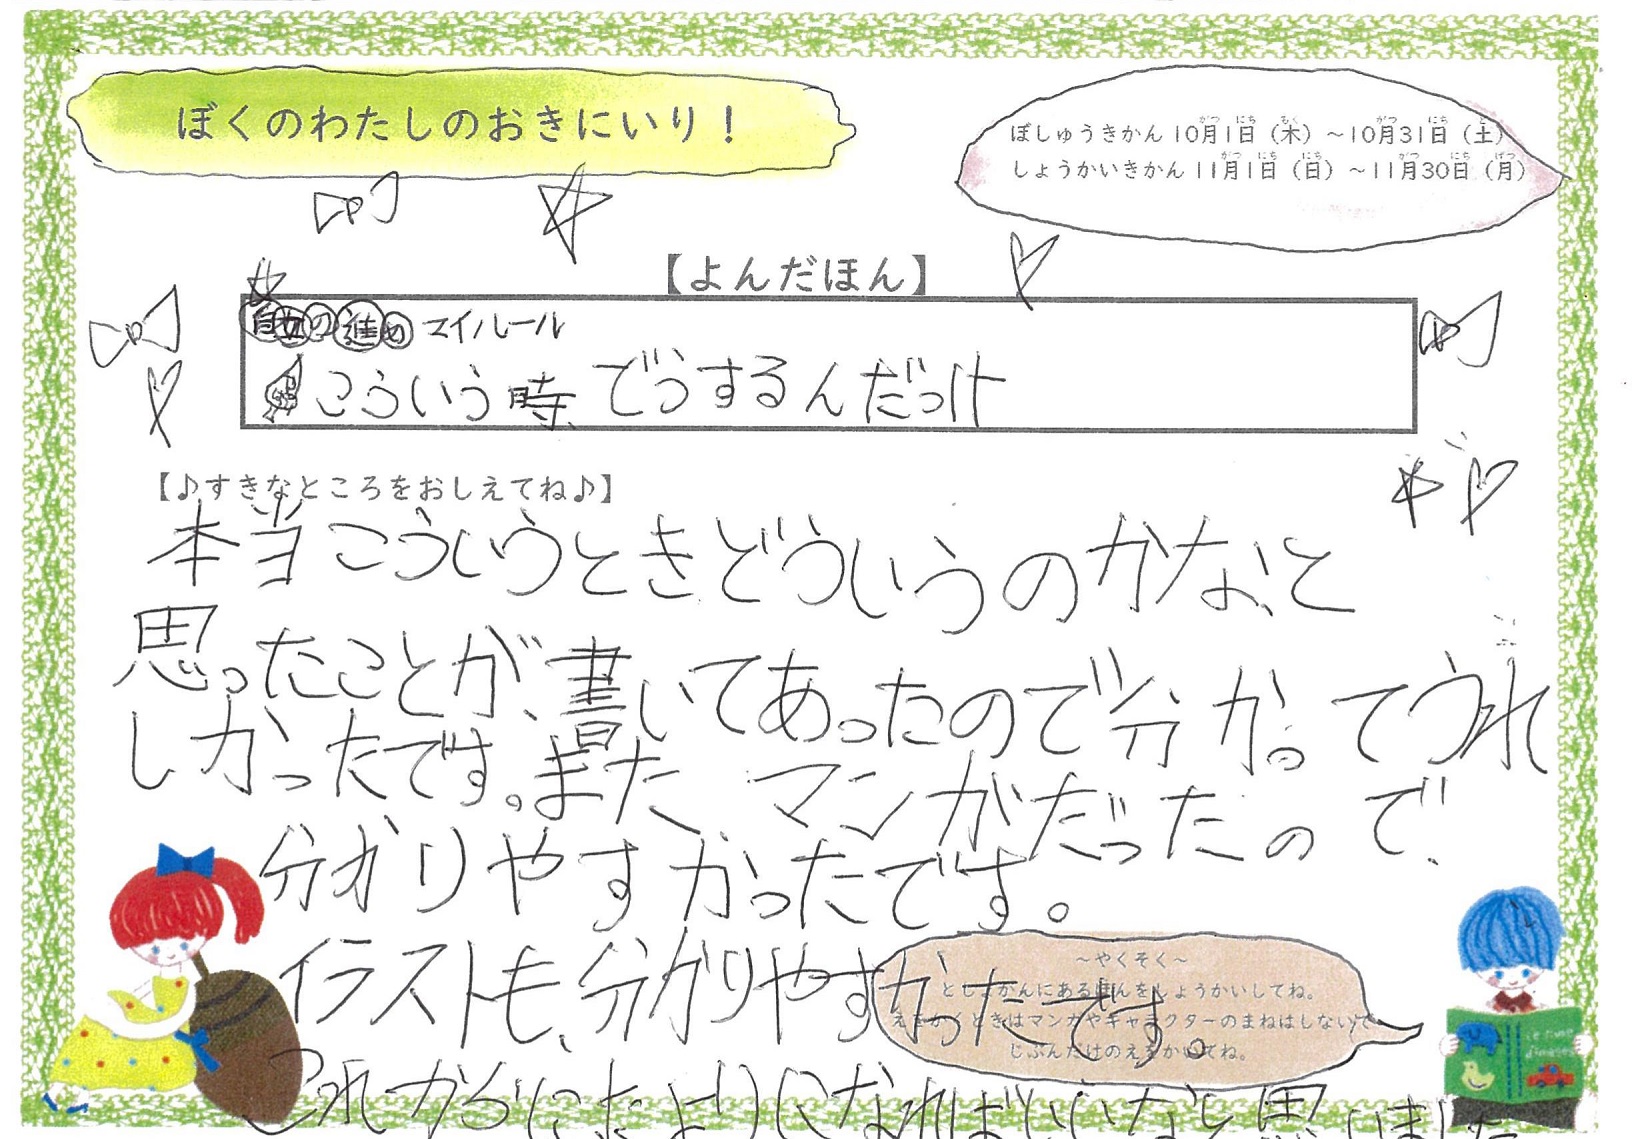 ぼくのわたしのおきにいり!
ぼしゅうきかん 10月1日(木)~10月31日(土)
しょうかいきかん 11月1日(日)~11月30日(月)
【よんだほん】
の進め マイルール
こういう時、どうするんだっけ
【♪すきなところをおしえてね♪】
本当こういうときどういうのかな、と
思ったことが、書いてあったので分かってうれ
しかったです。また、マンガだったので、
分かりやすかったです。
イラストも、分かりやすかったです。
~やくそく~
としょかんにあるほんをしょうかいしてね。
えをかくときはマンガやキャラクターのまねはしないで
じぶんだけのえをかいてね。
これからになればいいなと思いました